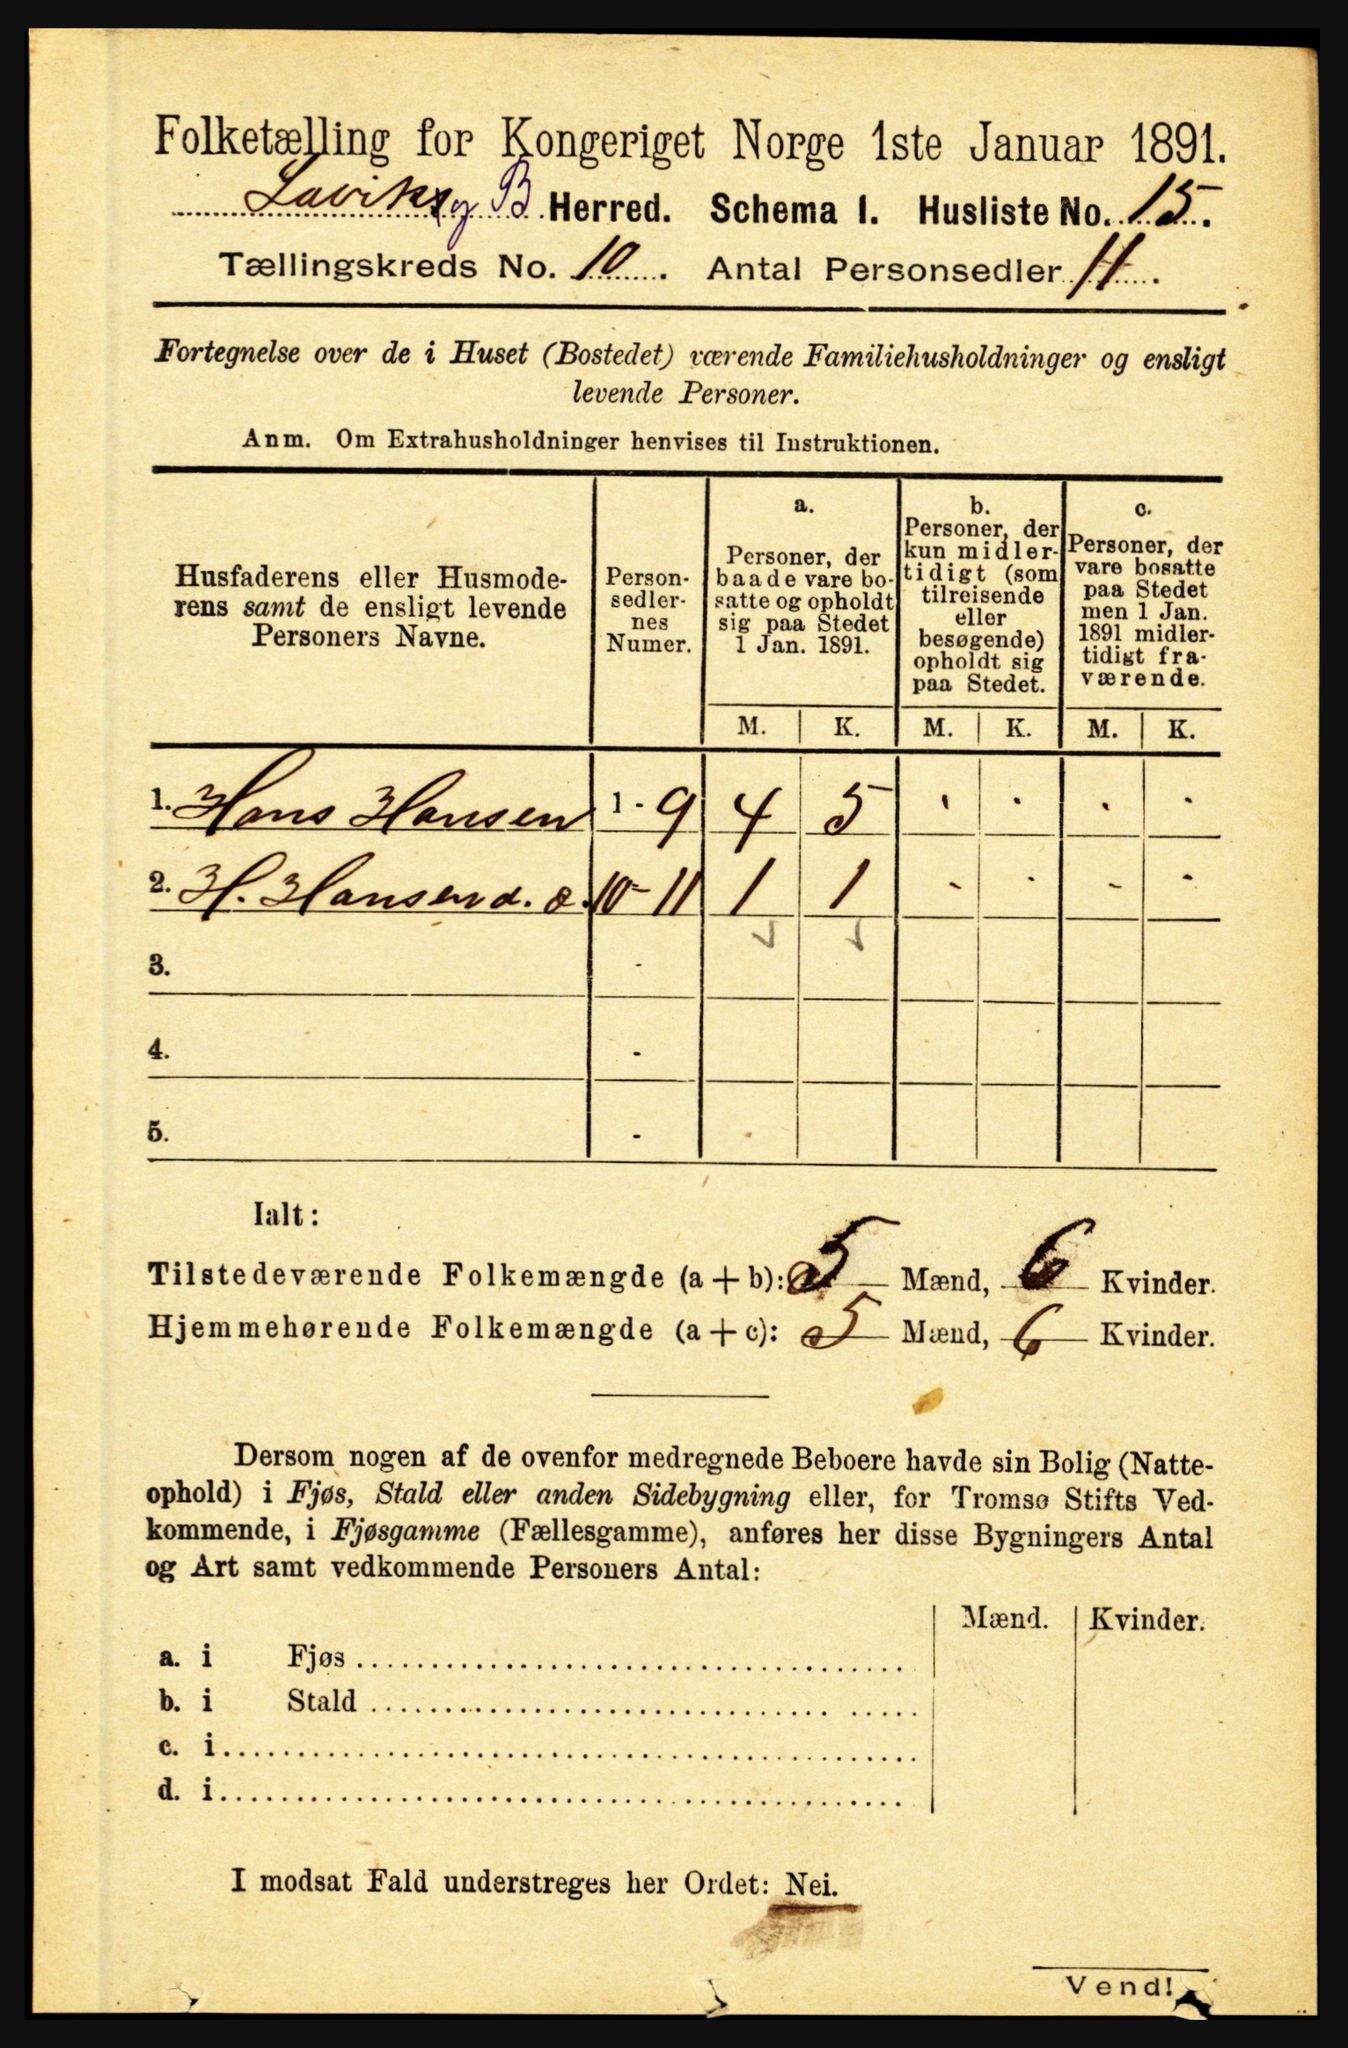 Folketælling for Kongeriget Norge 1ste Januar 1891.
Laviks og B Herred. Schema I. Husliste No. 15.
Tællingskreds No. 10. Antal Personsedler 11.
Fortegnelse over de i Huset (Bostedet) værende Familiehusholdninger og ensligt
levende Personer.
Anm. Om Extrahusholdninger henvises til Instruktionen.
Husfaderens eller Husmode-
rens samt de ensligt levende
Personers Navne.
Person-
sedler-
nes
Numer.
a.
Personer, der
baade vare bo-
satte og opholdt
sig paa Stedet
1 Jan. 1891.
b.
Personer, der
kun midler-
tidigt (som
tilreisende
eller
besøgende)
opholdt sig
paa Stedet.
c.
Personer, der
vare bosatte
paa Stedet
men 1 Jan.
1891 midler-
tidigt fra-
værende.
M. K. M. K. M. K.
1. Hans Hansen 1 - 9 4 5 . . . .
2. H. Hansen d. æ. 10 - 11 1 1 - . - .
3. -
4. -
5. -
Ialt:
Tilstedeværende Folkemængde (a + b): 5 Mænd, 6 Kvinder.
Hjemmehørende Folkemængde (a + c): 5 Mænd, 6 Kvinder.
Dersom nogen af de ovenfor medregnede Beboere havde sin Bolig (Natte-
ophold) i Fjøs, Stald eller anden Sidebygning eller, for Tromsø Stifts Ved-
kommende, i Fjøsgamme (Fællesgamme), anføres her disse Bygningers Antal
og Art samt vedkommende Personers Antal:
Mænd. Kvinder.
a. i Fjøs
b. i Stald
c. i
d. i
I modsat Fald understreges her Ordet: Nei.
Vend!